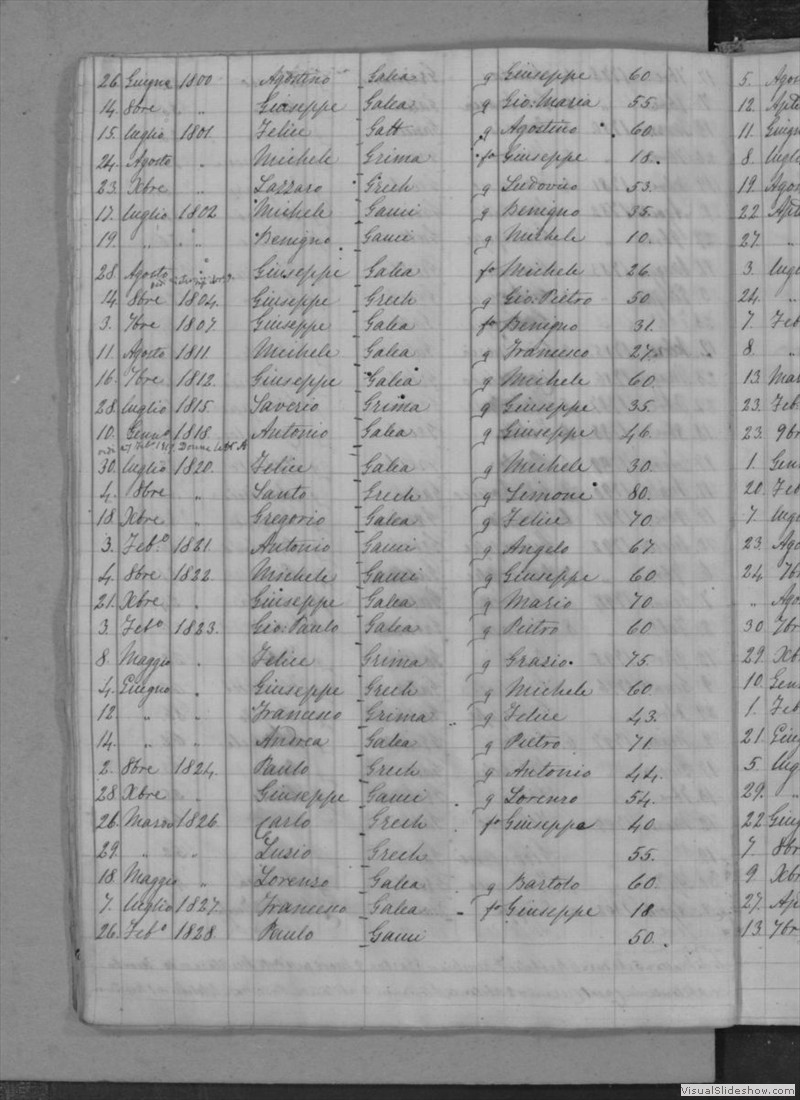 26. Giugno 1800 Agostino Galea q Giuseppe 60
14. 8bre " Giuseppe Galea q Gio: Maria 55.
15. luglio 1801. Felice Gatt q Agostino 60
24. Agosto " Michele Grima fo Giuseppe 18.
23. Xbre " Lazzaro Grech q Ludovico 53.
17. luglio 1802 Michele Gauci q Benigno 35.
19. " " Benigno Gauci q Michele 10.
28. Agosto " Giuseppe Galea fo Michele 26.
14. 8bre 1804. Giuseppe Grech q Gio: Pietro 50.
3. 7bre 1807. Giuseppe Galea fo Benigno 31.
11. Agosto 1811. Michele Galea q Francesco 27.
16. 7bre 1812. Giuseppe Galea q Michele 60.
28. luglio 1815. Saverio Grima q Giuseppe 35.
10. Genno 1818. Antonio Galea q Giuseppe 46.
30. luglio 1820. Felice Galea q Michele 30.
4. 8bre " Santo Grech q Simone 80.
18. Xbre " Gregorio Galea q Felice 70.
3. Febo 1821. Antonio Gauci q Angelo 67.
4. 8bre 1822. Michele Gauci q Giuseppe 60
21. Xbre " Giuseppe Galea q Mario 70
3. Febo 1823. Gio: Paulo Galea q Pietro 60
8. Maggio " Felice Grima q Grazio. 75.
4. Giugno " Giuseppe Grech q Michele 60.
12. " " Francesco Grima q Felice 43.
14. " " Andrea Galea q Pietro 71.
2. 8bre 1824. Paulo Grech q Antonio 44.
28. Xbre " Giuseppe Gauci q Lorenzo 54.
26. Marzo 1826. Carlo Grech fo Giuseppe 40
29. " " Luzio Grech 55.
18. Maggio " Lorenzo Galea q Bartolo 60.
7. luglio 1827. Francesco Galea fo Giuseppe 18
26. Febo 1828. Paulo Gauci 50.
5. Agos
12. Ap
11. Giugn
8. lugli
19. Agos
22 Ap
27. "
3. lugl
24. "
7. Feb
8. "
13. Mar
23. Feb.
23. 9bre
1. Gen
20. Feb
7. lugl
23. Ago
24 7b
" Ago
30. 7br
29. Xb
10. Gen
1. Feb
21. Giug
5. lug
29. "
22. Giug
7. 8br
9. Xbr
27. Ap
13. 7br
VisualSlideshow.com